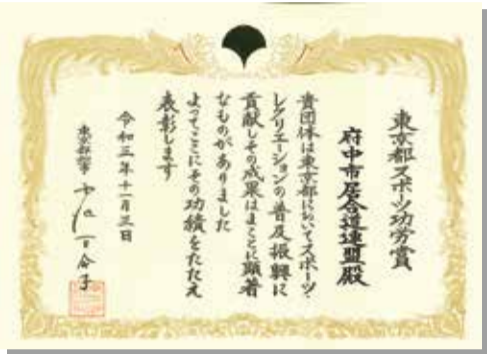 東京都スポーツ功労賞
府中市居合道連盟殿
貴団体は東京都においてスポーツ・
レクリエーションの普及振興に
貢献しその成果はまことに顕著
なものがありました
よってここにその功績をたたえ
表彰します
令和三年十一月三日
東京都知事 小池百合子